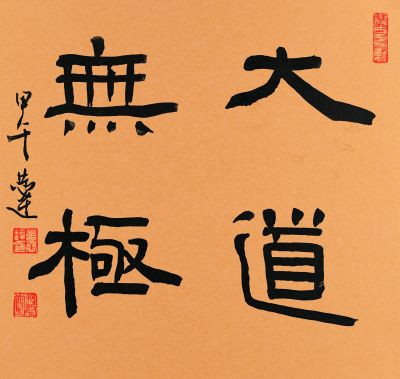 大道
無極
甲午